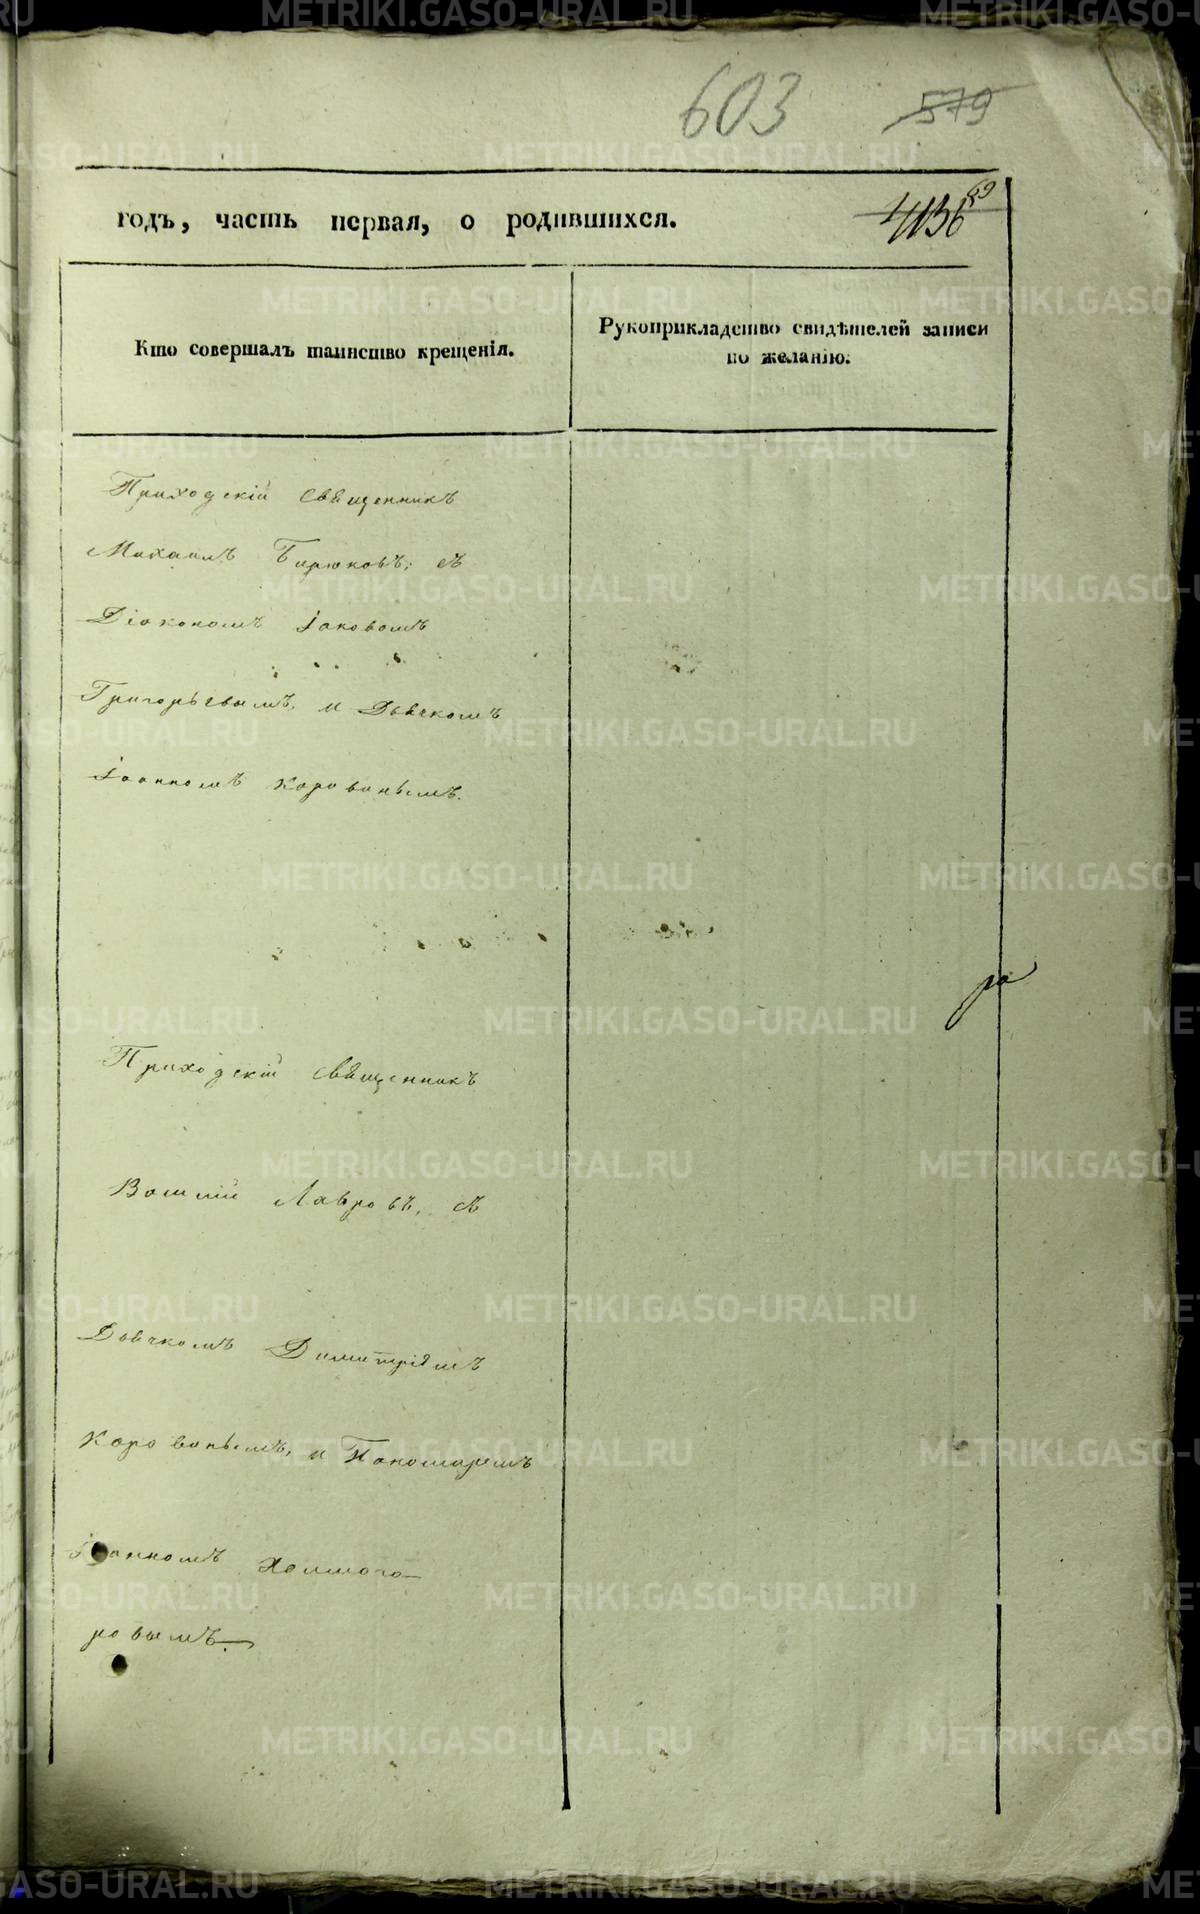 603 579
годъ, часть первая, о родившихся.
Кто совершалъ таинство крещенія.
Рукоприкладство свидѣтелей записи
по желанію.
Приходскій Священникъ
Михаилъ Бирюковъ, съ
Діакономъ Іаковомъ
Григорьевымъ, и Дьячкомъ
Іоанномъ Коровинымъ.
ра
Приходскій Священникъ
Василій Лавровъ, съ
Дьячкомъ Димитріемъ
Коровинымъ, и Пономаремъ
Іоанномъ Холмого-
ровымъ.
METRIKI.GASO-URAL.RU